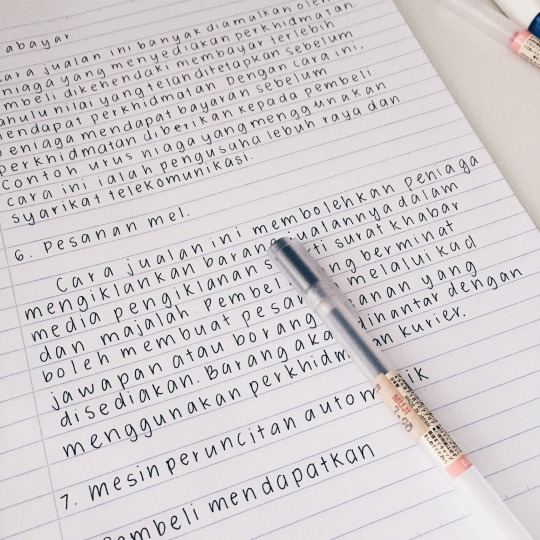 abayar
cara jualan ini banyak diamalkan oleh
niaga yang menyediakan perkhidmatan
mbeli dikehendaki membayar terlebih
ahulu nilai yang telah ditetapkan sebelum
endapat perkhidmatan. Dengan cara ini,
peniaga mendapat bayaran sebelum
perkhidmatan diberikan kepada pembeli
Contoh urus niaga yang menggunakan
cara ini ialah pengusaha lebuh raya dan
syarikat telekomunikasi.
6. Pesanan mel.
Cara jualan ini membolehkan peniaga
mengiklankan barang jualannya dalam
media pengiklanan s rti surat khabar
dan majalah Pembeli ng berminat
boleh membuat pesan melalui kad
jawapan atau borang anan yang
disediakan. Barang aka dinantar dengan
menggunakan perkhidm an kurier.
7. mesin peruncitan autom tik
Pembeli mendapatkan
MUJI